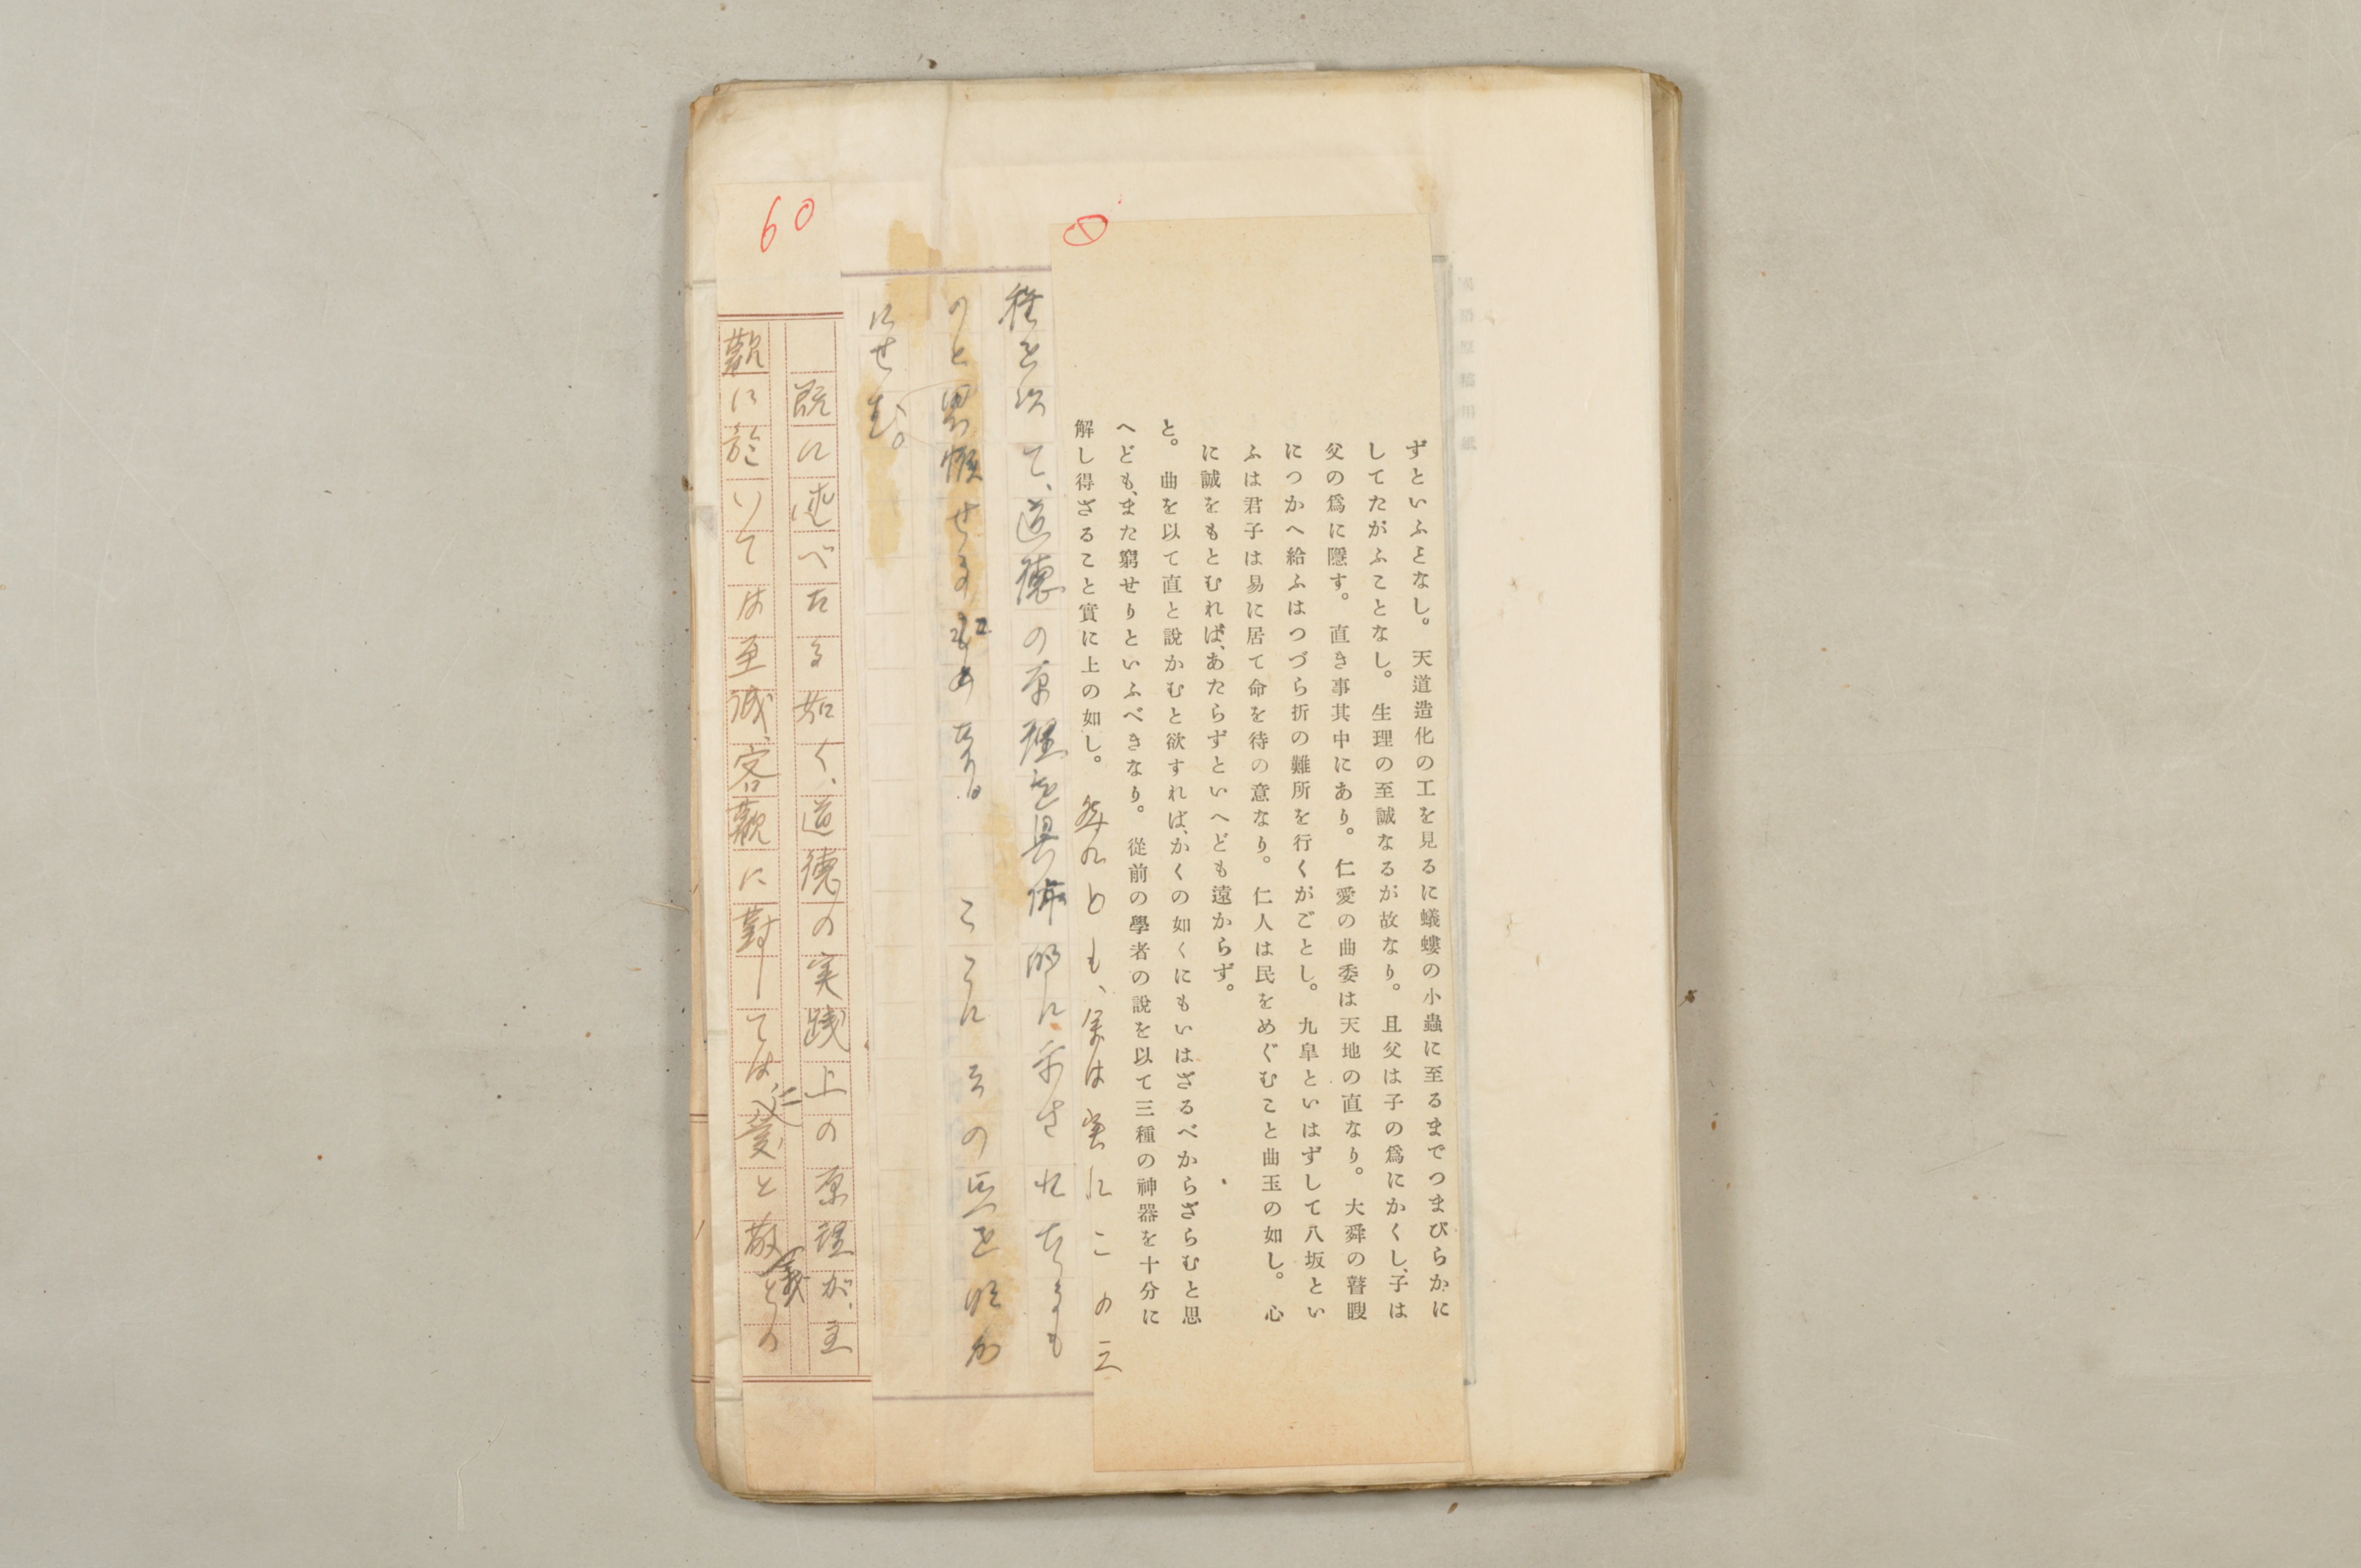 ずといふとなし。天道造化の工を見るに蟻螻の小蟲に至るまでつまびらかに
してたがふことなし。生理の至誠なるが故なり。且父は子の爲にかくし、子は
父の爲に隱す。直き事其中にあり。仁愛の曲委は天地の直なり。大舜の瞽瞍
につかへ給ふはつづら折の難所を行くがごとし。九皐といはずして八坂とい
ふは君子は易に居て命を待の意なり。仁人は民をめぐむこと曲玉の如し。心
に誠をもとむれば、あたらずといへども遠からず。
と。曲を以て直と說かむと欲すれば、かくの如くにもいはざるべからざらむと思
へども、また窮せりといふべきなり。從前の學者の說を以て三種の神器を十分に
解し得ざること實に上の如し。然れども、余は実にこの三
種を以て、道德の原理を具体的に示されたるも
のと思惟せるものなり。ここにその点を明か
にせむ。
60
既に述べたる如く、道德の実践上の原理が、主
觀に於いては至誠、客觀に對しては、仁愛と敬義との